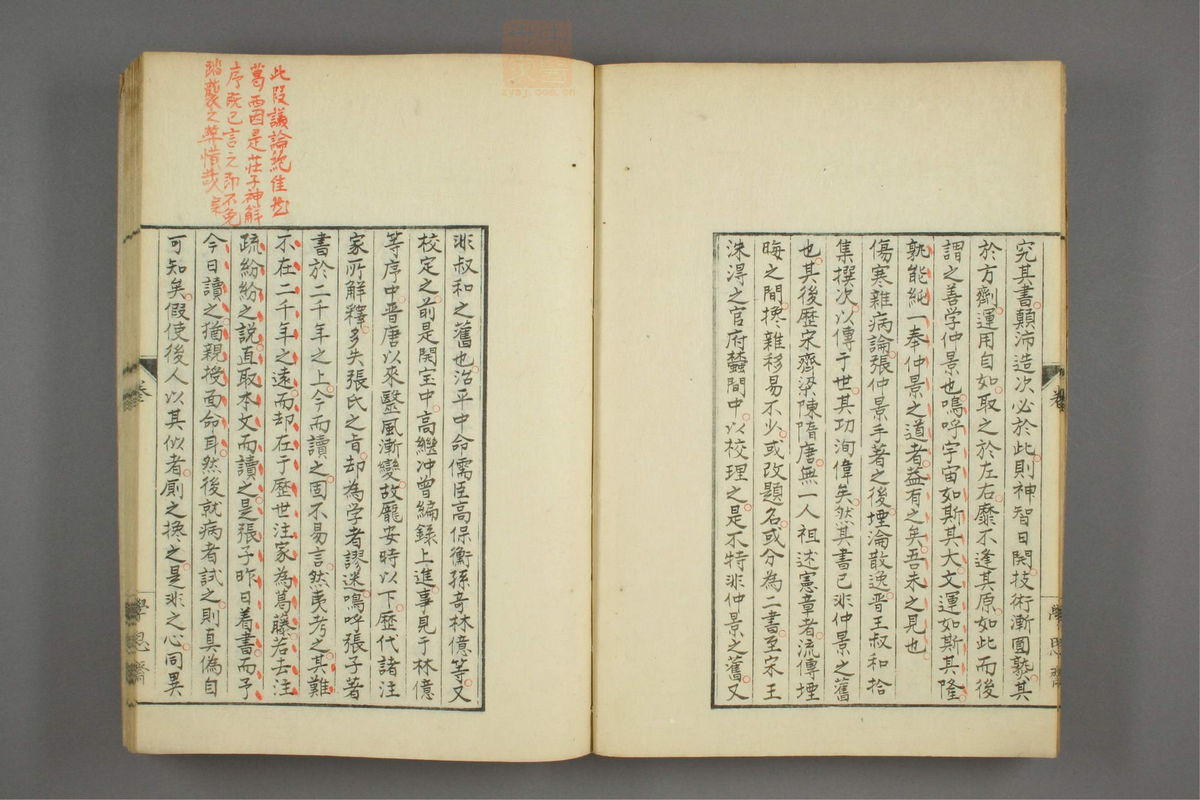 究其書顛沛造次必於此則神智日開技術漸圓熟其
於方劑運用自如取之於左右靡不逢其原如此而後
謂之善学仲景也嗚呼宇宙如斯其大文運如斯其隆
孰能純一奉仲景之道者益有之矣吾未之見也
傷寒雜病論張仲景手著之後堙淪散逸晋王叔和拾
集撰次以傳于世其功洵偉矣然其書已非仲景之舊
也其後歴宋齊梁陳隋唐無一人祖述憲章者流傳堙
晦之間攙雜移易不少或改題名或分為二書至宋王
洙得之官府蠧間中以校理之是不特非仲景之舊又
卷
學思齋
此段議論絶佳
葛西因是莊子神解
序既已言之即不免
踏襲之弊惜哉
非叔和之舊也治平中命儒臣高保衡孫奇林億等又
校定之前是開宝中高繼冲曽編録上進事見于林億
等序中晋唐以來毉風漸變故龐安時以下歴代諸注
家所解釋多失張氏之旨却為学者謬迷嗚呼張子著
書於二千年之上今而讀之固不易言然夷考之其難
不在二千年之遠而却在于歴世注家為葛藤若去注
疏紛紛之説直取本文而讀之是張子昨日着書而予
今日讀之猶親授面命耳然後就病者試之則真偽自
可知矣假使後人以其似者厠之攙之是非之心同異
卷
學思齋
zysj.com.cn